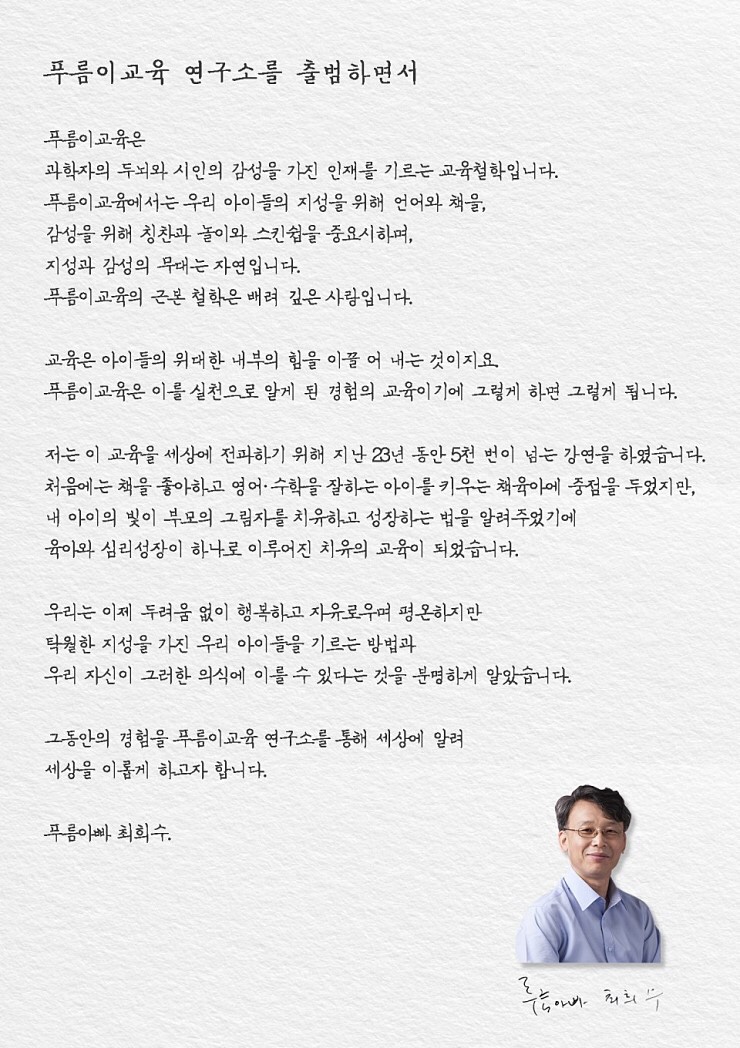 푸름이교육 연구소를 출범하면서
푸름이교육은
과학자의 두뇌와 시인의 감성을 가진 인재를 기르는 교육철학입니다.
푸름이교육에서는 우리 아이들의 지성을 위해 언어와 책을,
감성을 위해 칭찬과 놀이와 스킨쉽을 중요시하며,
지성과 감성의 무대는 자연입니다.
푸름이교육의 근본 철학은 배려 깊은 사랑입니다.
교육은 아이들의 위대한 내부의 힘을 이끌 어 내는 것이지요.
푸름이교육은 이를 실천으로 알게 된 경험의 교육이기에 그렇게 하면 그렇게 됩니다.
저는 이 교육을 세상에 전파하기 위해 지난 23년 동안 5천 번이 넘는 강연을 하였습니다.
처음에는 책을 좋아하고 영어·수학을 잘하는 아이를 키우는 책육아에 중점을 두었지만,
내 아이의 빛이 부모의 그림자를 치유하고 성장하는 법을 알려주었기에
육아와 심리성장이 하나로 이루어진 치유의 교육이 되었습니다.
우리는 이제 두려움 없이 행복하고 자유로우며 평온하지만
탁월한 지성을 가진 우리 아이들을 기르는 방법과
우리 자신이 그러한 의식에 이를 수 있다는 것을 분명하게 알았습니다.
그동안의 경험을 푸름이교육 연구소를 통해 세상에 알려
세상을 이롭게 하고자 합니다.
푸름아빠 최희수.
푸름아빠 최희수